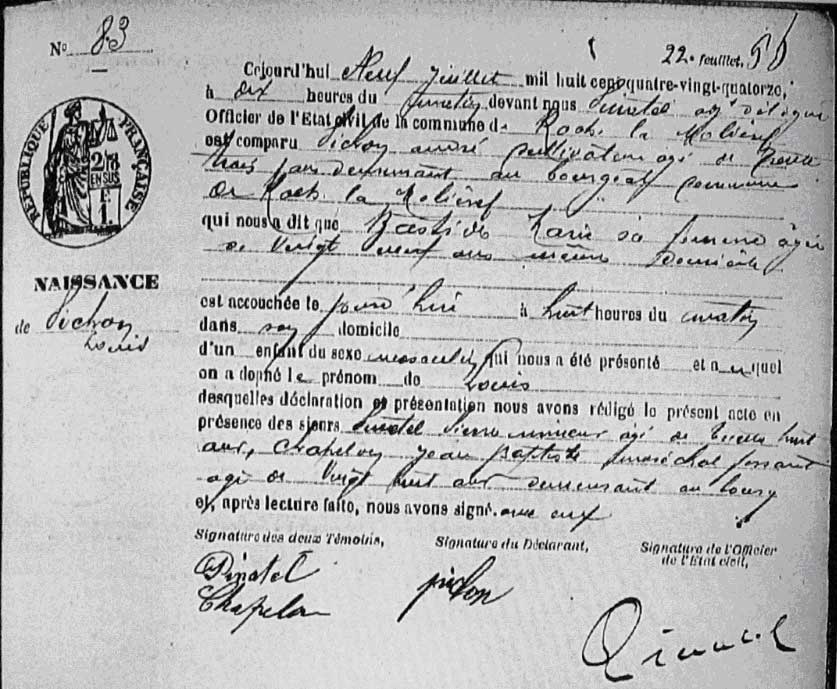 No 83
22e feuillet, 56
Cejourd'hui Neuf juillet mil huit cent quatre-vingt-quatorze,
à dix heures du matin devant nous
Officier de l'Etat civil de la commune de Roche la Molière
est comparu Pichon André cultivateur agé de trente
trois ans demeurant au bourg commune
de Roche la Molière
qui nous a dit que Bastide Marie sa femme âgée
de vingt neuf ans même domicile
RÉPUBLIQUE FRANÇAISE
2/10
EN SUS
F.
1.
NAISSANCE
de Pichon
Louis
est accouchée le jourd'hui à huit heures du matin
dans son domicile
d'un enfant du sexe masculin qui nous a été présenté et auquel
on a donné le prénom de Louis
desquelles déclaration et présentation nous avons rédigé le présent acte en
présence des sieurs Pinatel Pierre mineur agé de trente huit
ans, Chapelon Jean Baptiste maréchal ferrant
agé de vingt huit ans demeurant au bourg
et, après lecture faite, nous avons signé avec eux
Signature des deux Témoins, Signature du Déclarant, Signature de l'Officier
de l'Etat civil,
Pinatel
Chapelon
pichon